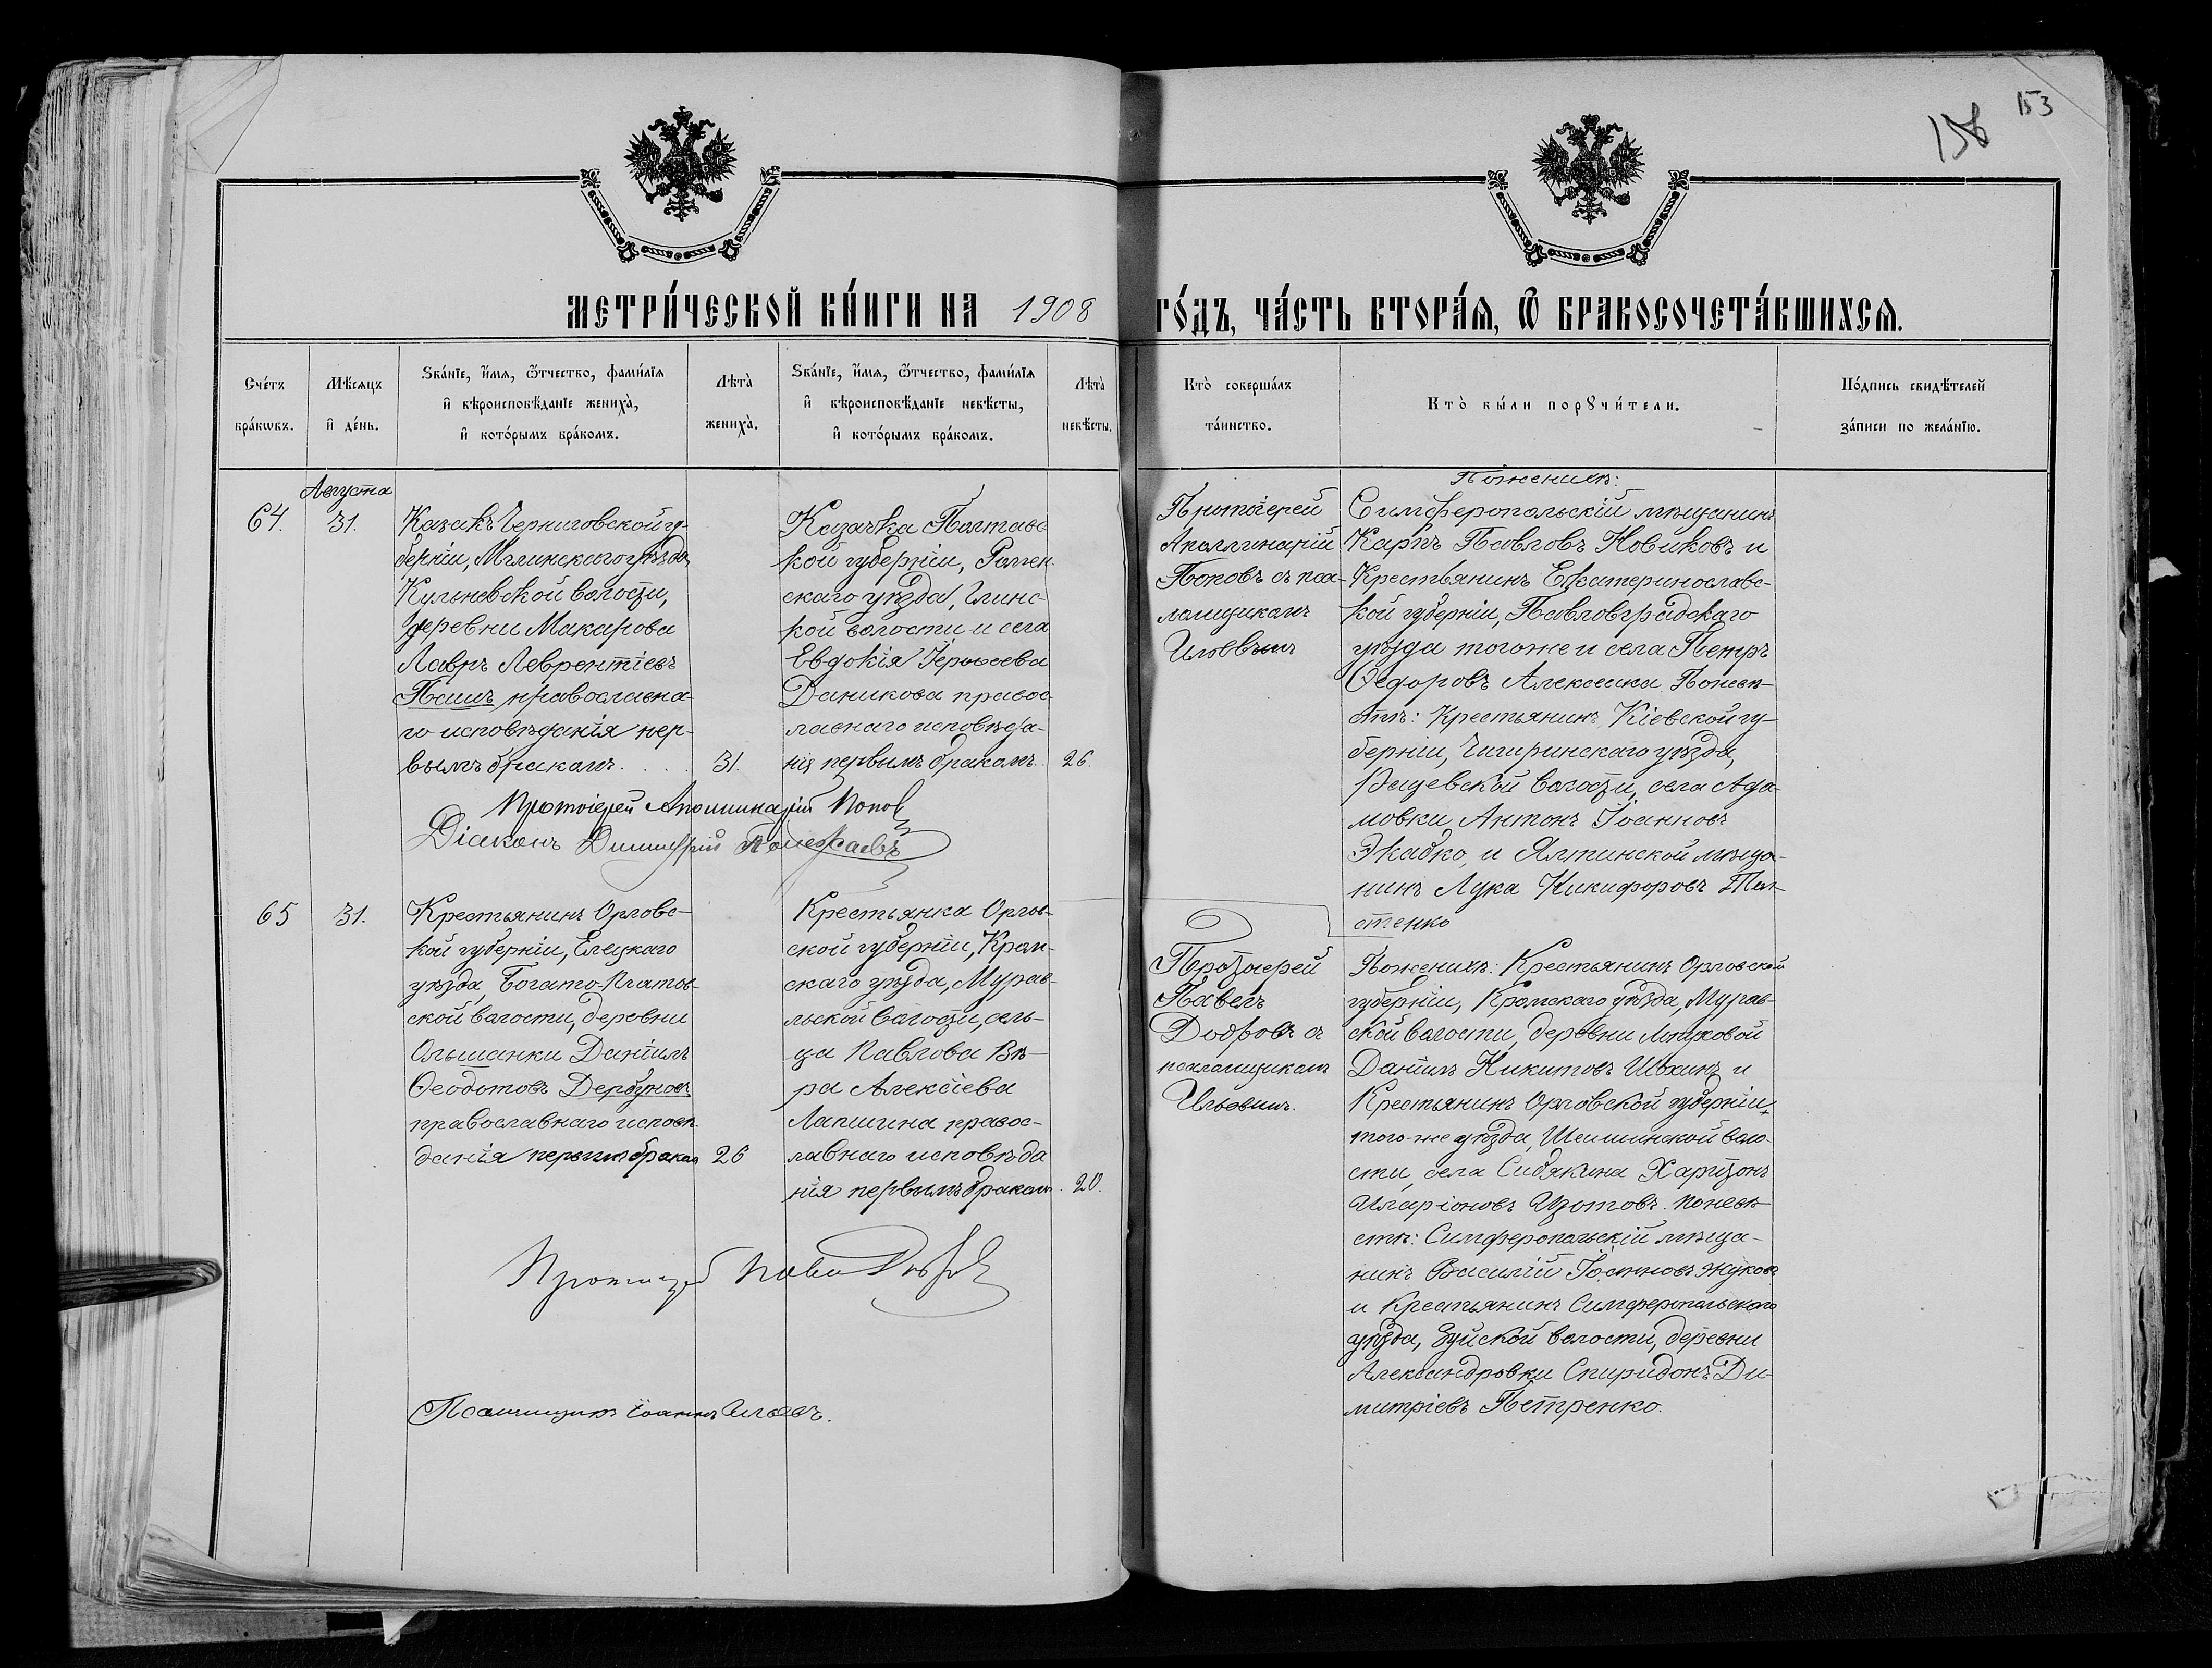 153
158
МЕТРИ́ЧЕСКОЙ КНИ́ГИ НА 1908 ГО́ДЪ, ЧА́СТЬ ВТОРА́Я, Ѡ БРАКОСОЧЕТА́ВШИХСЯ.
Сче́тъ
бра́кѡвъ.
Мѣ́сяцъ
и҆ де́нь.
Ѕва́нїе, и҆́мѧ, ѻ҆́тчество, фами́лїѧ
и҆ вѣроисповѣ́данїе жениха̀,
и҆ кото́рымъ бра́комъ.
Лѣта̀
жениха̀.
Ѕва́нїе, и҆́мѧ, ѻ҆́тчество, фами́лїѧ
и҆ вѣроисповѣ́данїе невѣ́сты,
и҆ кото́рымъ бра́комъ.
Лѣта̀
невѣ́сты.
Кто̀ соверша́лъ
та́инство.
Кто̀ бы́ли порꙋчи́тели.
По́дпись свидѣ́телей
за́писи по жела́нїю.
Августа
64.
31.
Казакъ Черниговской гу-
берніи, Мглинскаго уѣзда,
Кульневской волости,
деревни Макарова
Лавръ Леврентіевъ
Пашъ православна-
го исповѣданія пер-
вымъ бракомъ....
31.
Казачка Полтавс-
кой губерніи, Ромен-
скаго уѣзда, Глинс-
кой волости и села
Евдокія Іерофеева
Даникова правос-
лавнаго исповѣда-
нія первымъ бракомъ.
26.
Протоіерей Аполлинарій Попов
Діаконъ Димитрій
Протоіерей
Аполлинарій
Поповъ съ пса-
ломщикомъ
Ильевымъ
По женихѣ:
Симферопольскій мѣщанинъ
Карпъ Павловъ Новиковъ и
Крестьянинъ Екатеринославс-
кой губерніи, Павловградскаго
уѣзда того же и села Петръ
Ѳедоровъ Алексеика. По невѣ-
стѣ: Крестьянинъ Кіевской гу-
берніи, Чигиринскаго уѣзда,
волости, села Ада-
мовки Антонъ Іоанновъ
Жабко, и Ялтинской мѣща-
нинъ Лука Никифоровъ Тол-
стенко
65
31.
Крестьянинъ Орловс-
кой губерніи, Елецкаго
уѣзда, Богато-Платов-
ской волости, деревни
Ольшанки Даніилъ
Ѳеодотовъ Дербуновъ
православнаго исповѣ-
данія первымъ бракомъ
26
Крестьянка Орлов-
ской губерніи, Кром-
скаго уѣзда, Мурав-
льской волости, сель-
ца Павлова Вѣ-
ра Алексіева
Лапшина правос-
лавнаго исповѣда
нія первымъ бракомъ.
20.
Протоіерей
Павелъ
Добровъ съ
псаломщикомъ
Ильевымъ.
По женихѣ: Крестьянинъ Орловской
губерніи, Кромскаго уѣзда, Мурав-
ской волости, деревни
Даніилъ Никитовъ Шохинъ и
Крестьянинъ Орловской губерніи,
того-же уѣзда, воло-
сти, села Сибякина Харитонъ
Иларіоновъ Изотовъ. По невѣ-
стѣ: Симферопольскій мѣща-
нинъ Василій Іоанновъ Жуковъ
и Крестьянинъ Симферопольскаго
уѣзда, Зуйской волости, деревни
Александровки Спиридонъ Ди-
митріевъ Петренко.
Протоіерей Павел Добров
Псаломщикъ Іоаннъ Ильевъ.